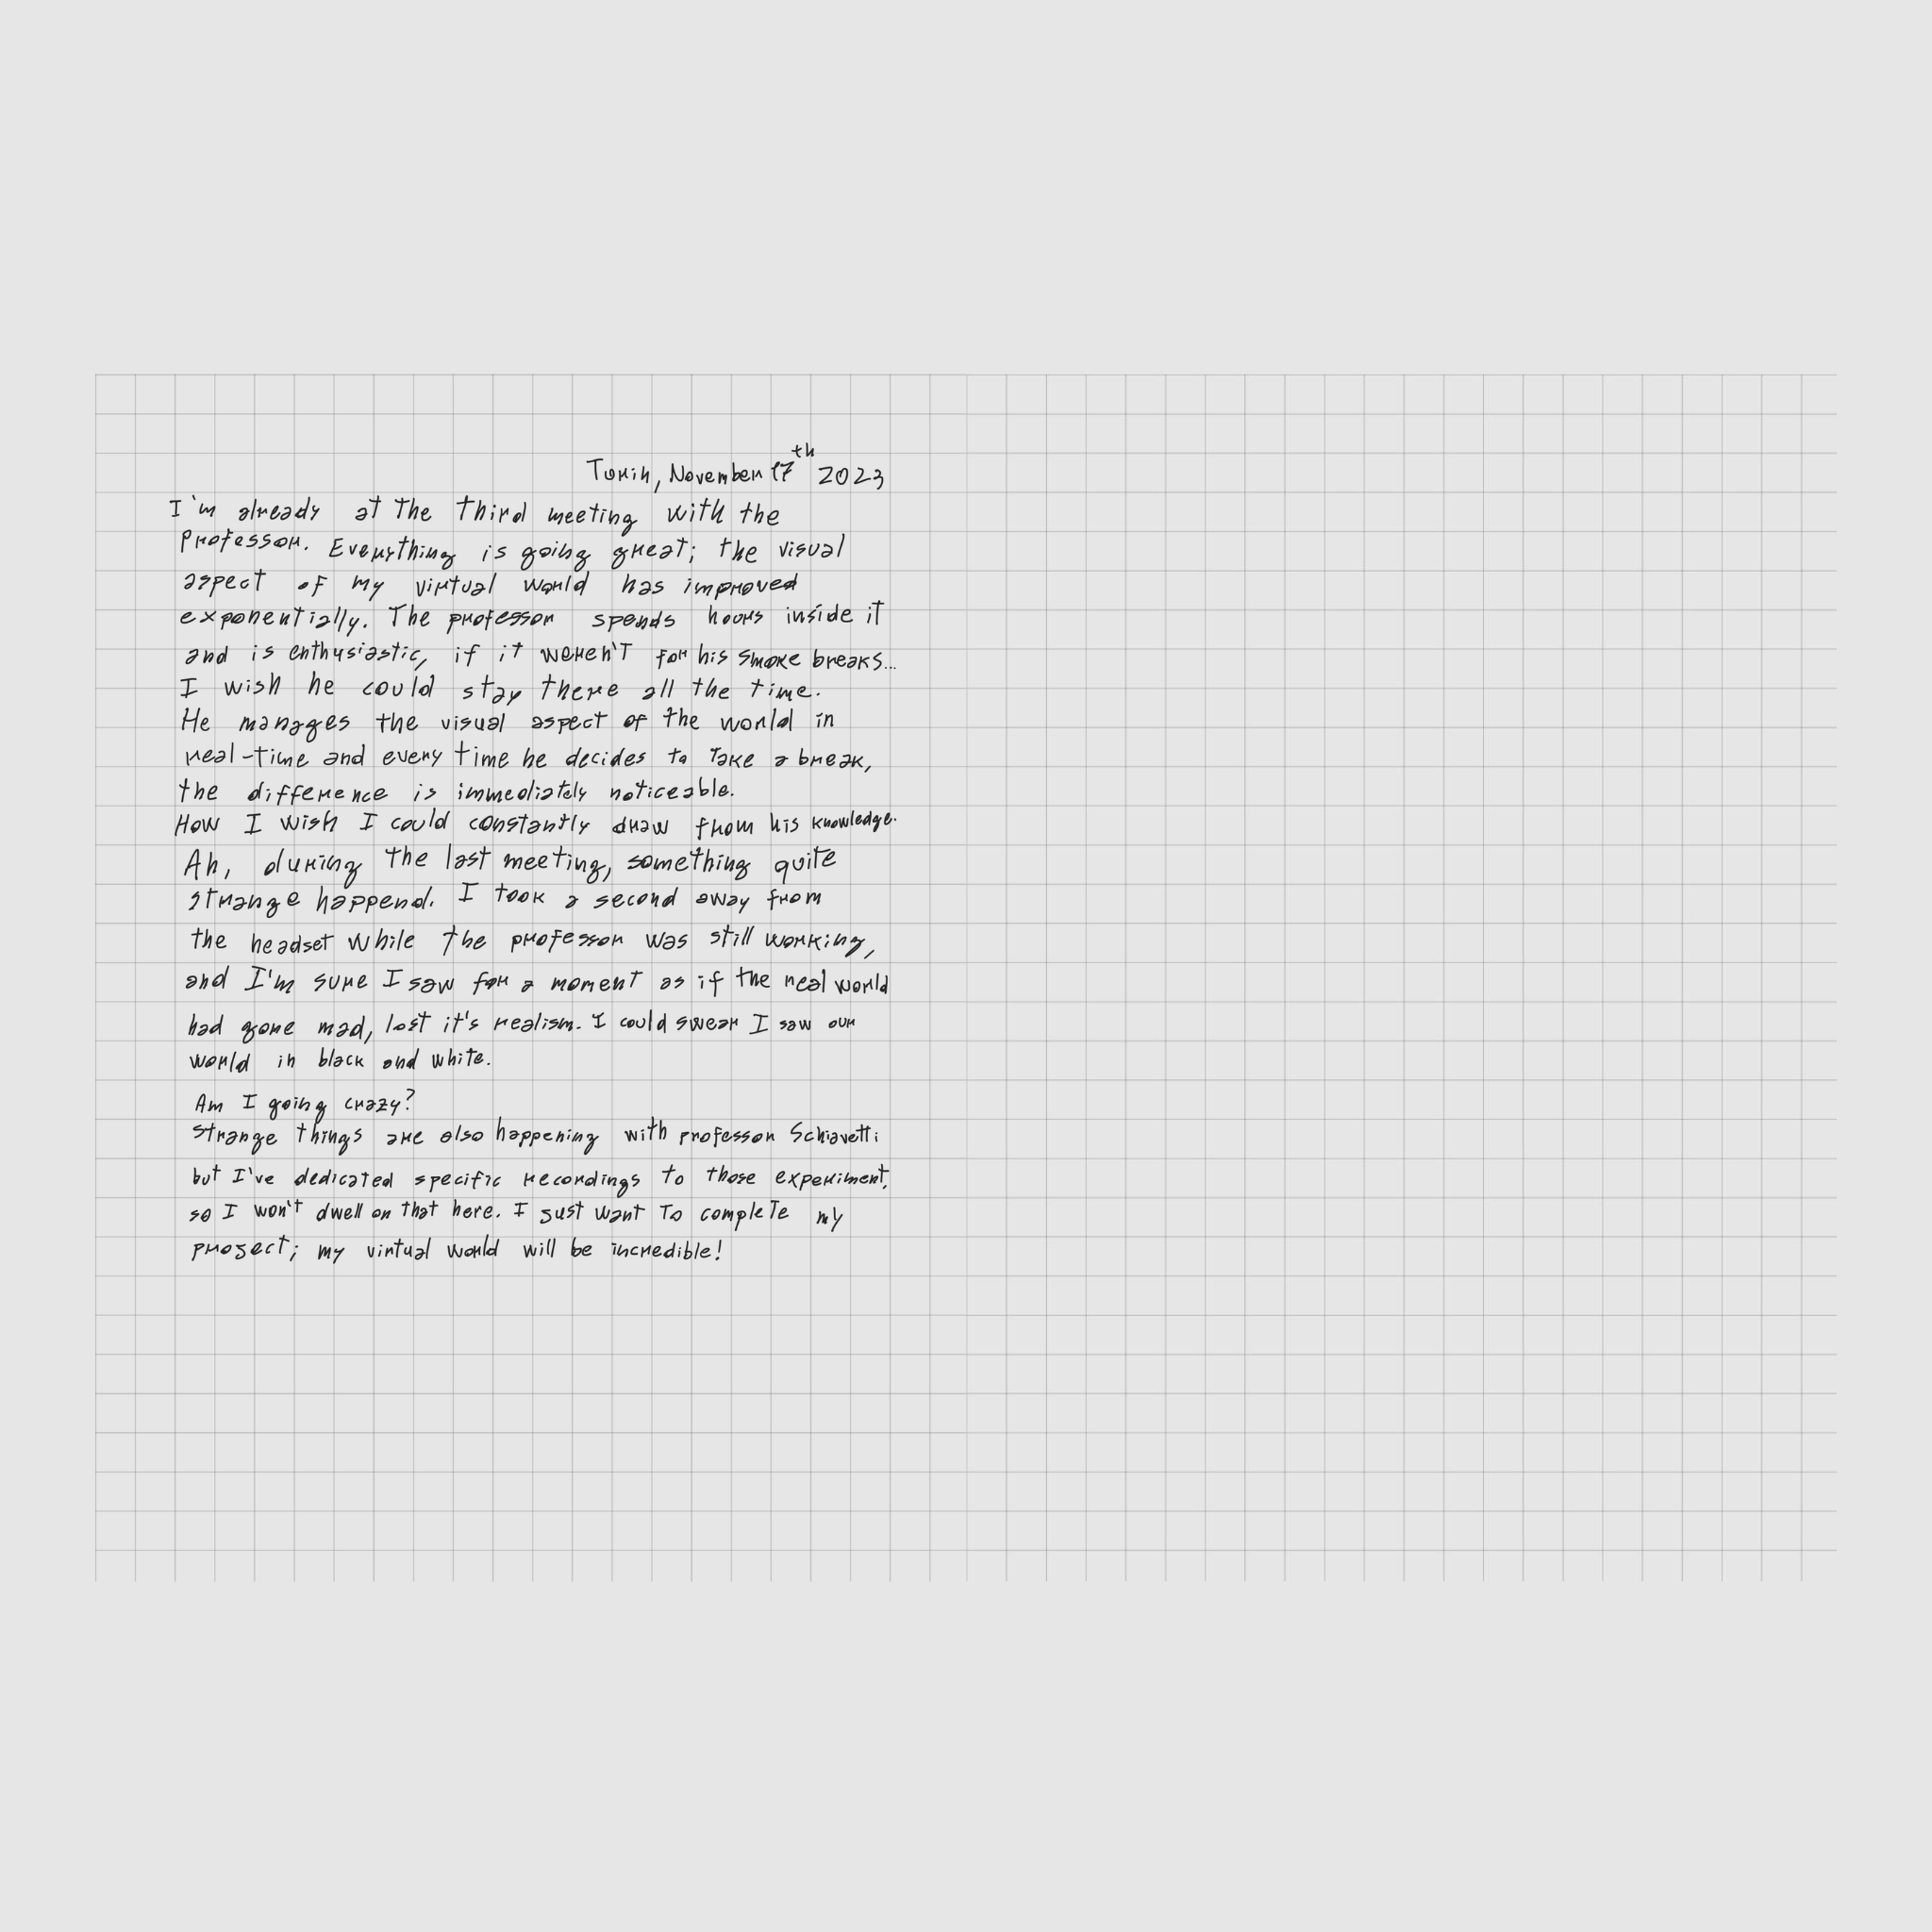 Turin, November 17th 2023
I'm already at the third meeting with the
professor. Everything is going great; the visual
aspect of my virtual world has improved
exponentially. The professor spends hours inside it
and is enthusiastic, if it weren't for his smoke breaks...
I wish he could stay there all the time.
He manages the visual aspect of the world in
real-time and every time he decides to take a break,
the difference is immediately noticeable.
How I wish I could constantly draw from his knowledge.
Ah, during the last meeting, something quite
strange happend. I took a second away from
the headset while the professor was still working,
and I'm sure I saw for a moment as if the real world
had gone mad, lost it's realism. I could swear I saw our
world in black and white.
Am I going crazy?
Strange things are also happening with professor Schiavetti
but I've dedicated specific recordings to those experiment,
so I won't dwell on that here. I just want to complete my
project; my virtual world will be incredible!